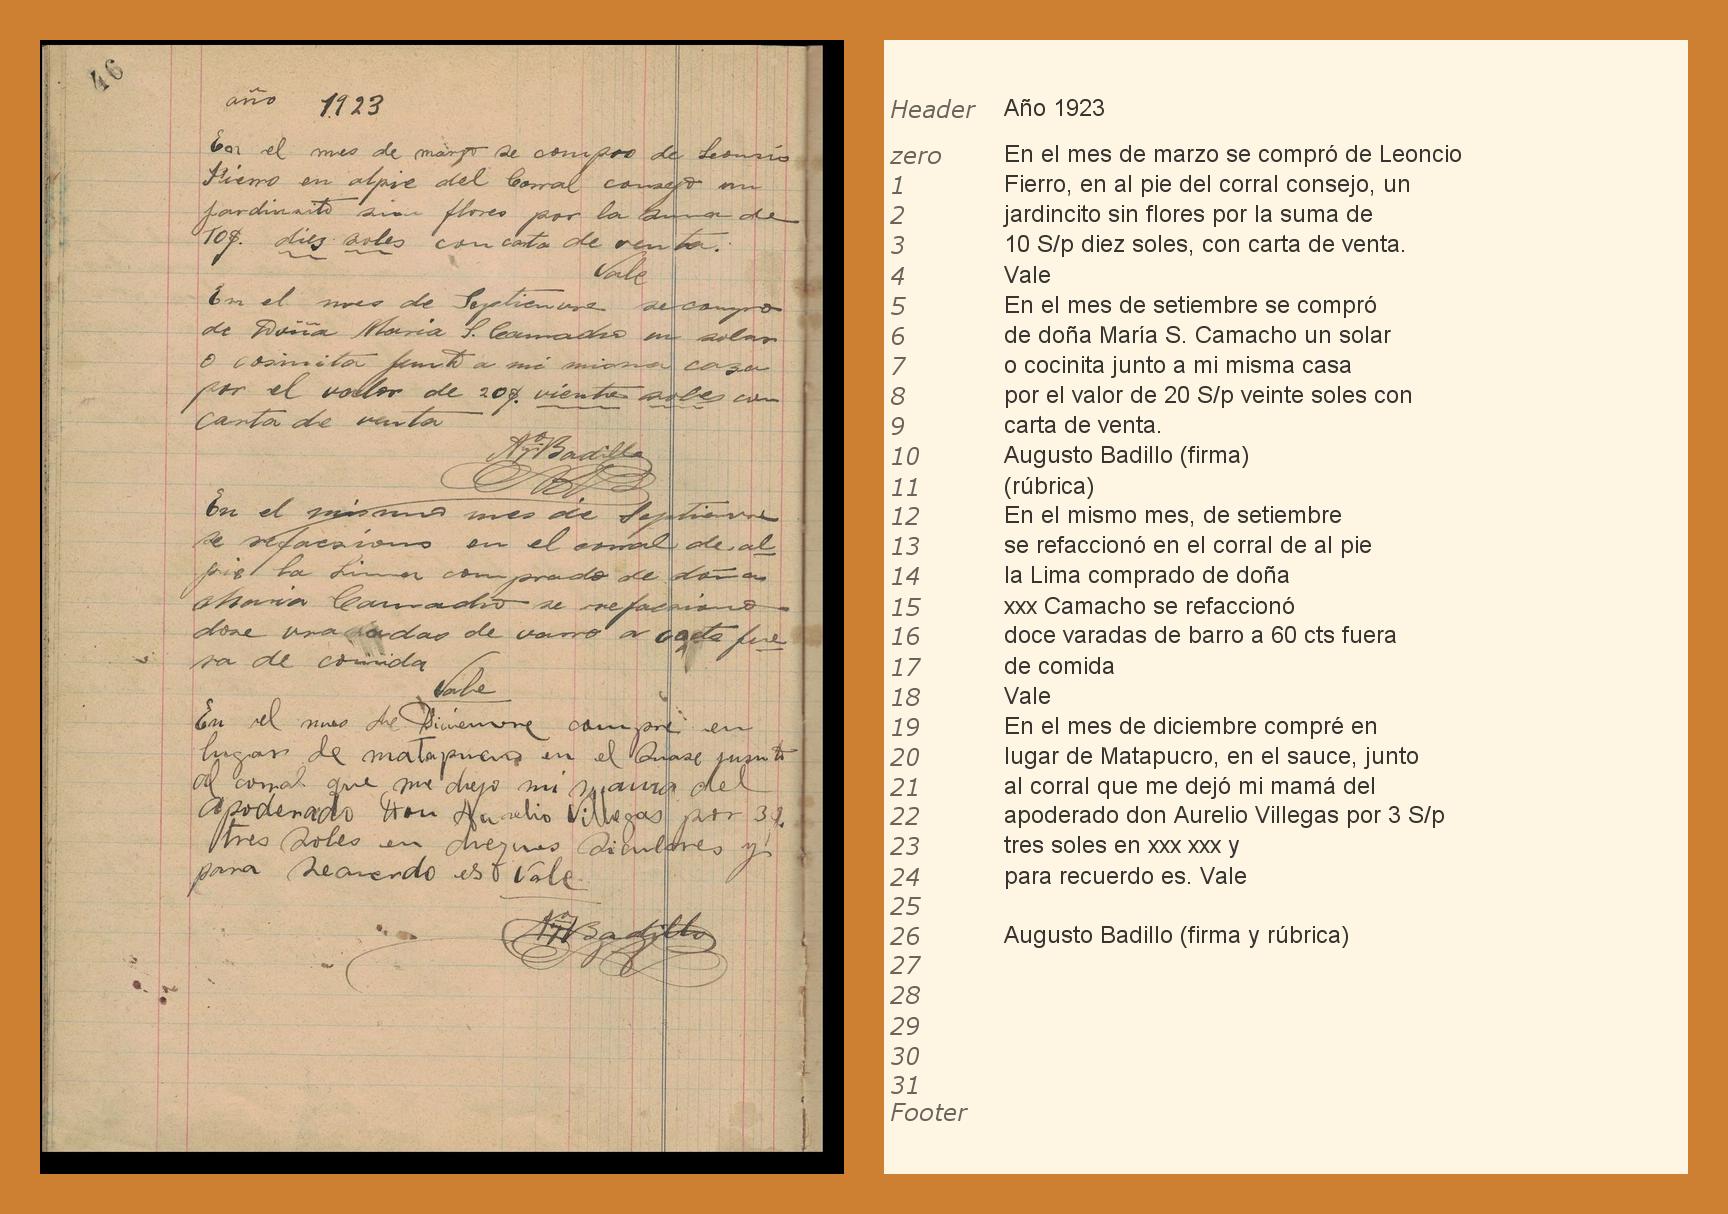 46
año 1923
En el mes de marzo se compro de Leoncio
Fierro en alpie del Corral consejo un
jardinsito sin flores por la suma de
10$. dies soles con cata de venta.
Vale
En el mes de Septiemvre se compro
de Doña Maria S. Camacho un solar
o cosinita junto a mi misma casa
por el valor de 20$. viente soles con
Carta de venta
Badillo
En el mismo mes de Septiemvre
se refacsiono en el corral de al
pie la Lima comprado de doña
Maria Camacho se refacsiono
dose varadas de varro a fue
ra de comida
Vale
En el mes de Diciemvre compré en
lugar de matapucro en el Sause junto
al corral que me dejo mi mama del
apoderado Don Aurelio Villegas por 3$.
tres Soles en y
para recuerdo est Vale
Badillo
Header Año 1923
zero En el mes de marzo se compró de Leoncio
1 Fierro, en al pie del corral consejo, un
2 jardincito sin flores por la suma de
3 10 S/p diez soles, con carta de venta.
4 Vale
5 En el mes de setiembre se compró
6 de doña María S. Camacho un solar
7 o cocinita junto a mi misma casa
8 por el valor de 20 S/p veinte soles con
9 carta de venta.
10 Augusto Badillo (firma)
11 (rúbrica)
12 En el mismo mes, de setiembre
13 se refaccionó en el corral de al pie
14 la Lima comprado de doña
15 xxx Camacho se refaccionó
16 doce varadas de barro a 60 cts fuera
17 de comida
18 Vale
19 En el mes de diciembre compré en
20 lugar de Matapucro, en el sauce, junto
21 al corral que me dejó mi mamá del
22 apoderado don Aurelio Villegas por 3 S/p
23 tres soles en xxx xxx y
24 para recuerdo es. Vale
25
26 Augusto Badillo (firma y rúbrica)
27
28
29
30
31
Footer